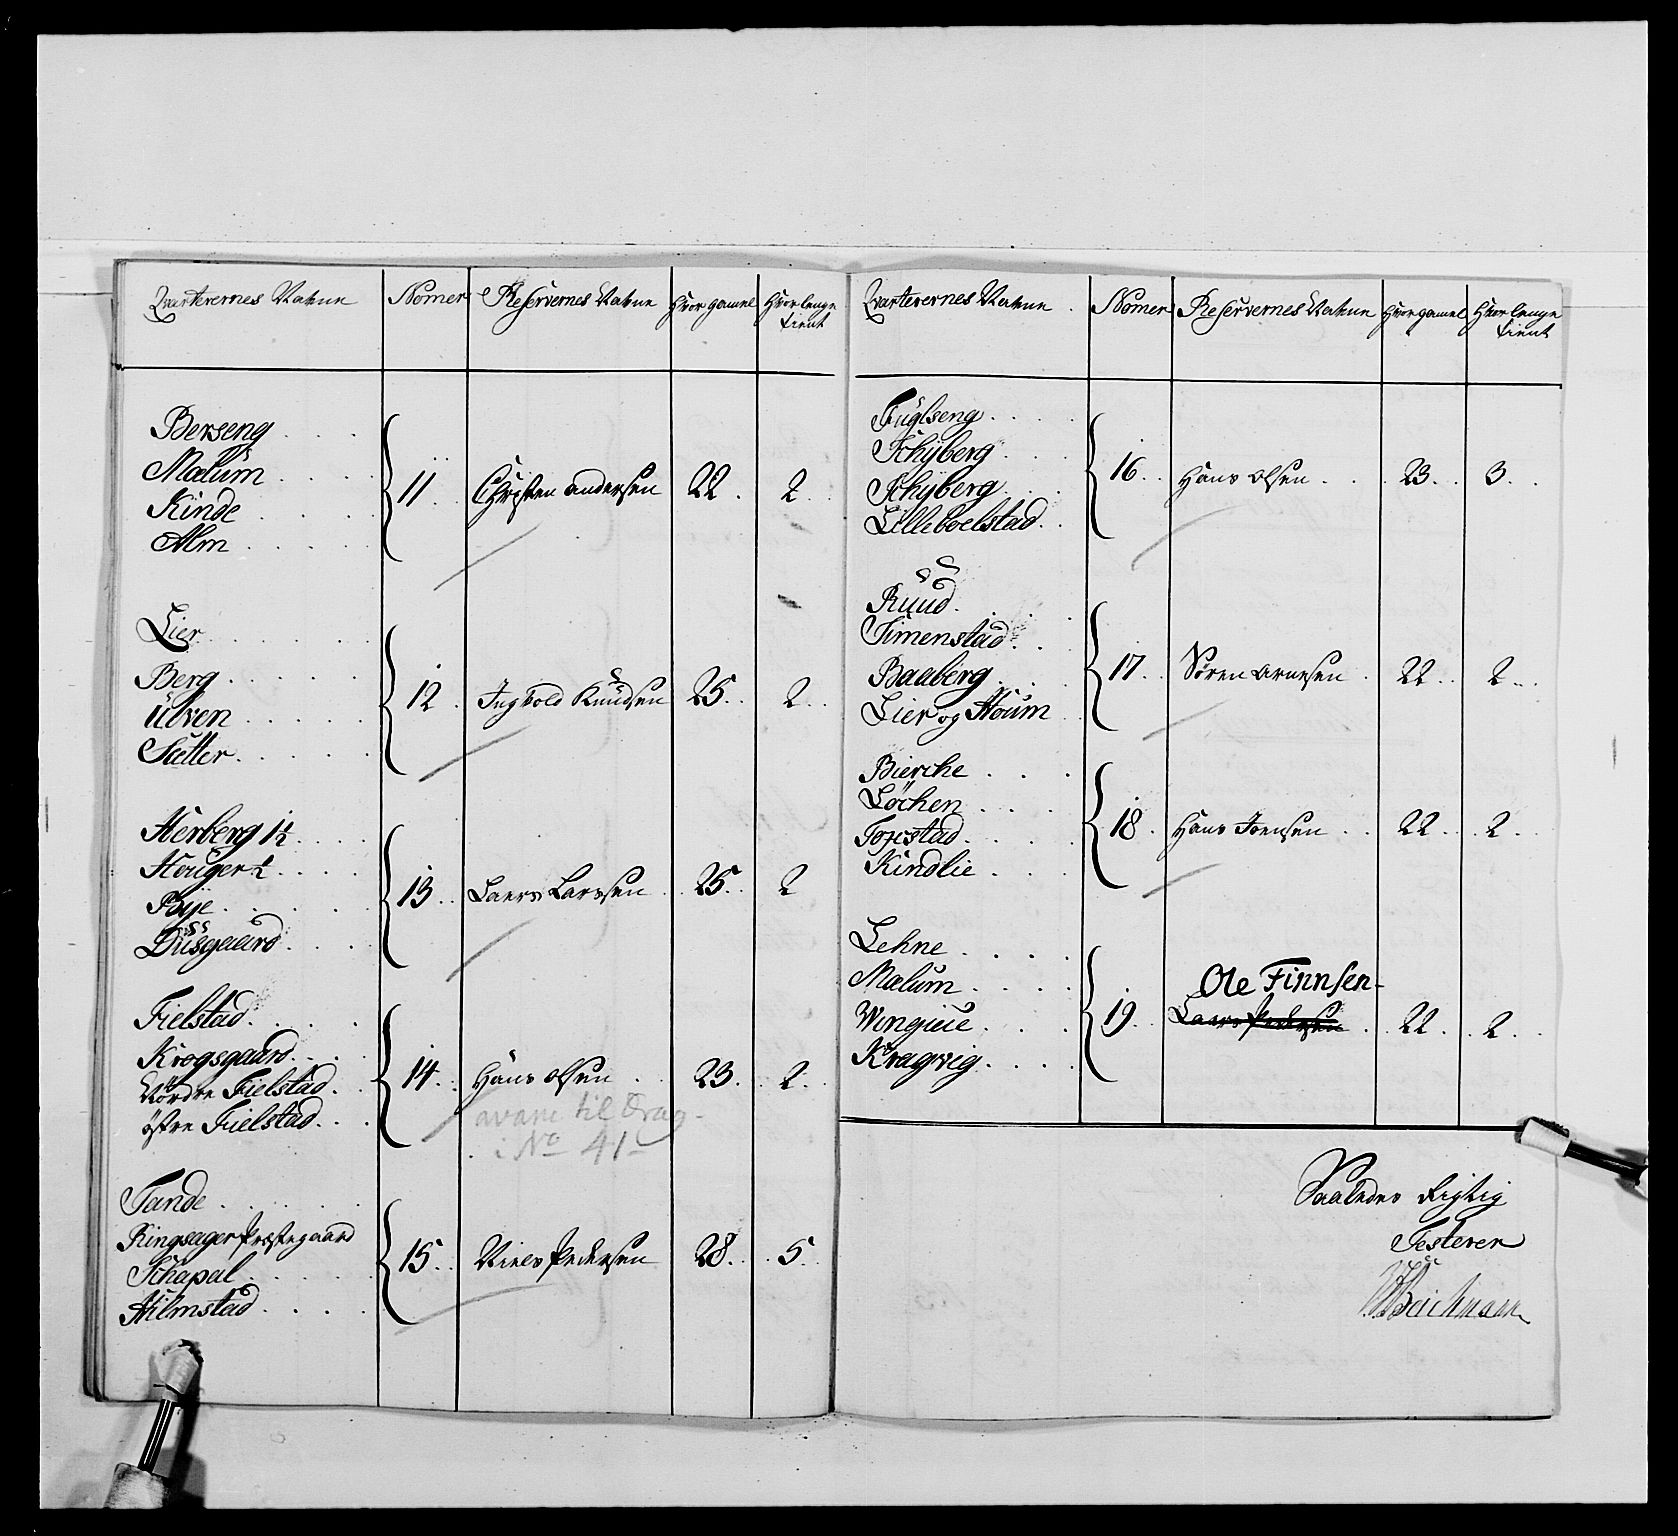 Qvarterernes Nafne Nomer Reservernes Nafne Hvor gamel Hvor lenge tient
Berseng
Mælum
Kinde
Alm
11 Christen Andersen 22 2
Lier
Berg
Ulven
Sætter
12 Ingvold Knudsen 25 2
Herberg 1½
Houger ½
Pøije
Diisgaard
13 Laers Larssen 25 2
Fielstad
Krogsgaard
Nordre Fielstad
østre Fielstad
14 Hans Olsen 23 2
avanc til Drag
i No 41
Tande
Ringsager Præstegaard
Schapal
Hilmstad
15 Niels Pedersen 28 5
Qvarterernes Nafne Nomer Reservernes Nafne Hvor gamel Hvor lenge tient
Fuglseng
Schyberg
Schyberg
Lilleboelstad
16 Hans Olsen 23 3
Ruud
Simenstad
Baaberg
Lier og Houm
17 Søren Arnesen 22 2
Bierche
Løchen
Tojestad
Kindlie
18 Hans Joensen 22 2
Lehne
Mælum
Wingiue
Kragvig
Ole Finnsen
19 Laers Pedersen 22 2
Saaledes Rigtig
Testerer
Beichmann